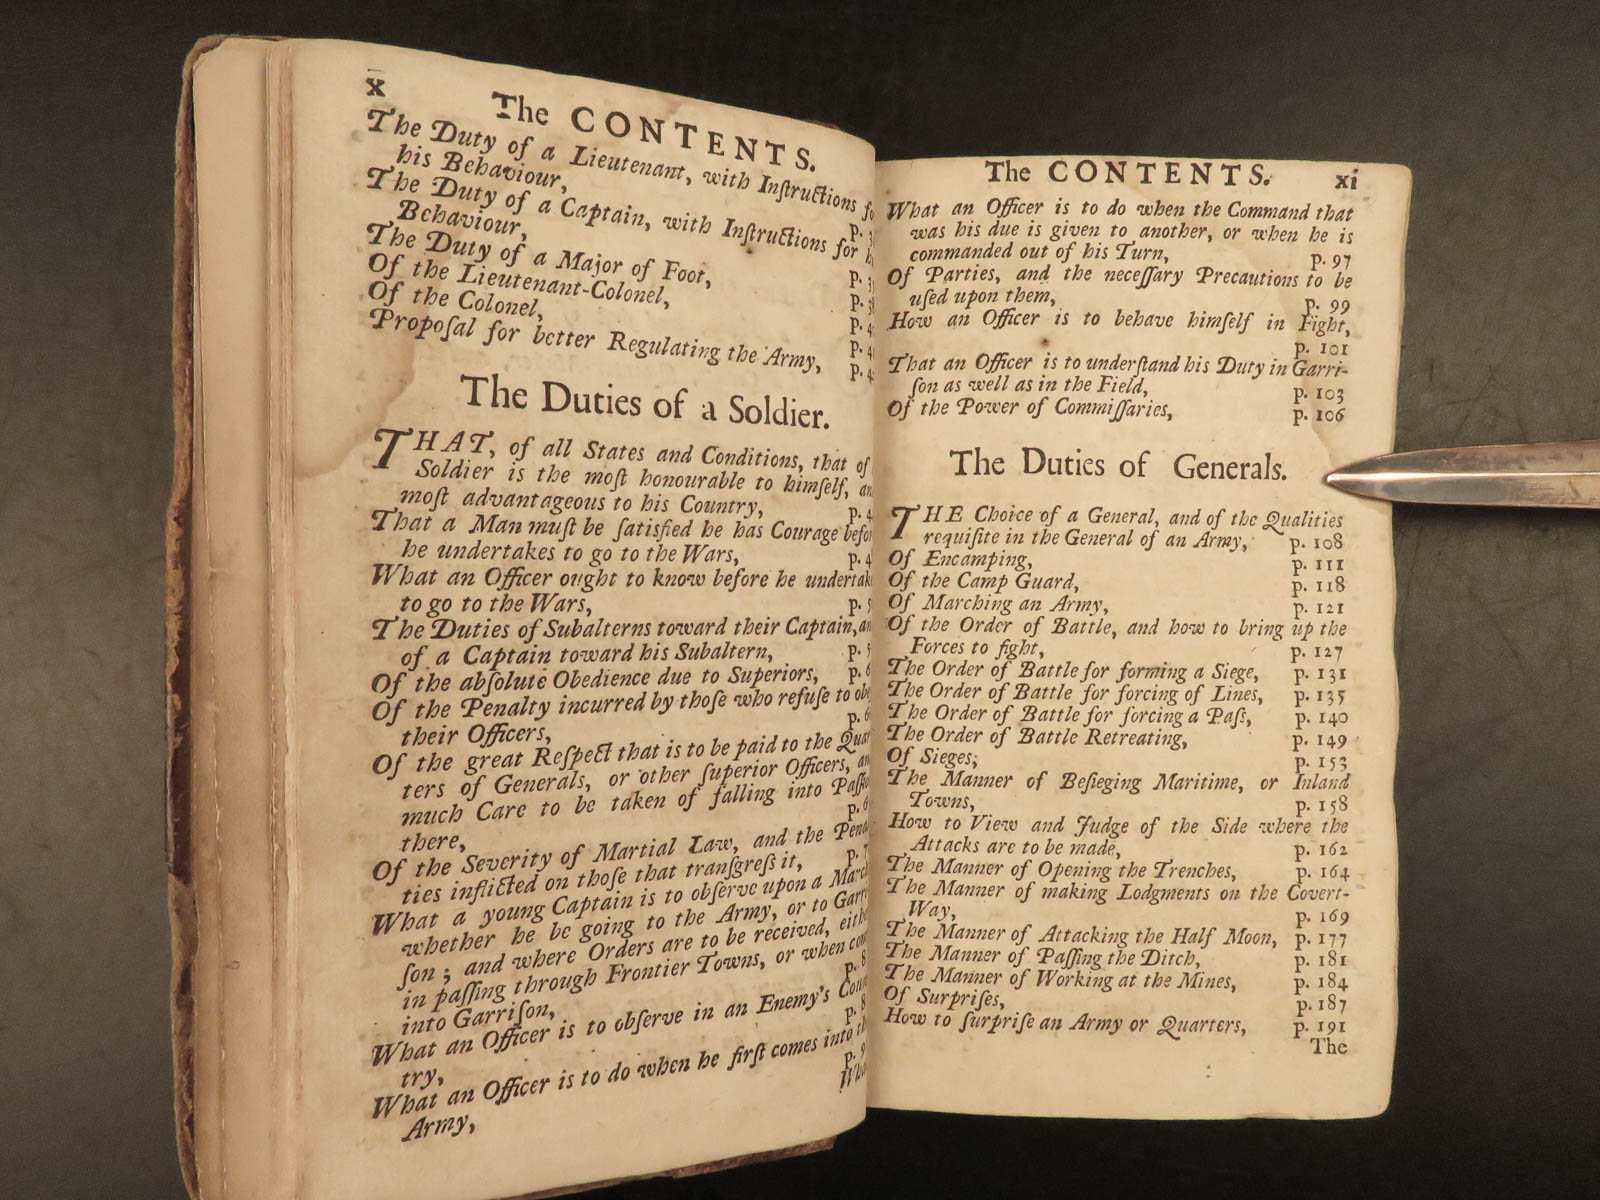 x
The CONTENTS.
The Duty of a Lieutenant, with Inſtructions
his Behaviour, p.
The Duty of a Captain, with Inſtructions for
Behaviour, p.
The Duty of a Major of Foot, p.
Of the Lieutenant-Colonel, p.
Of the Colonel, p.
Propoſal for better Regulating the Army, p.
The Duties of a Soldier.
THAT, of all States and Conditions, that of
Soldier is the moſt honourable to himſelf,
moſt advantageous to his Country, p.
That a Man muſt be ſatisfied he has Courage
he undertakes to go to the Wars, p.
What an Officer ought to know before he
to go to the Wars, p.
The Duties of Subalterns toward their Captain,
of a Captain toward his Subaltern, p.
Of the abſolute Obedience due to Superiors, p.
Of the Penalty incurred by thoſe who refuſe to
their Officers, p.
Of the great Reſpect that is to be paid to the
ters of Generals, or other ſuperior Officers,
much Care to be taken of falling into
there, p.
Of the Severity of Martial Law, and the
ties inflicted on thoſe that tranſgreſs it, p.
What a young Captain is to obſerve upon a
whether he be going to the Army, or to
ſon; and where Orders are to be received,
in paſſing through Frontier Towns, or when
into Garriſon, p.
What an Officer is to obſerve in an Enemy's
try, p.
What an Officer is to do when he firſt comes into
Army, p.
The CONTENTS. xi
What an Officer is to do when the Command that
was his due is given to another, or when he is
commanded out of his Turn, p. 97
Of Parties, and the neceſſary Precautions to be
uſed upon them, p. 99
How an Officer is to behave himſelf in Fight,
p. 101
That an Officer is to underſtand his Duty in Garri-
ſon as well as in the Field, p. 103
Of the Power of Commiſſaries, p. 106
The Duties of Generals.
THE Choice of a General, and of the Qualities
requiſite in the General of an Army, p. 108
Of Encamping, p. 111
Of the Camp Guard, p. 118
Of Marching an Army, p. 121
Of the Order of Battle, and how to bring up the
Forces to fight, p. 127
The Order of Battle for forming a Siege, p. 131
The Order of Battle for forcing of Lines, p. 135
The Order of Battle for forcing a Paſs, p. 140
The Order of Battle Retreating, p. 149
Of Sieges, p. 153
The Manner of Beſieging Maritime, or Inland
Towns, p. 158
How to View and Judge of the Side where the
Attacks are to be made, p. 162
The Manner of Opening the Trenches, p. 164
The Manner of making Lodgments on the Covert-
Way, p. 169
The Manner of Attacking the Half Moon, p. 177
The Manner of Paſſing the Ditch, p. 181
The Manner of Working at the Mines, p. 184
Of Surpriſes, p. 187
How to ſurpriſe an Army or Quarters, p. 191
The